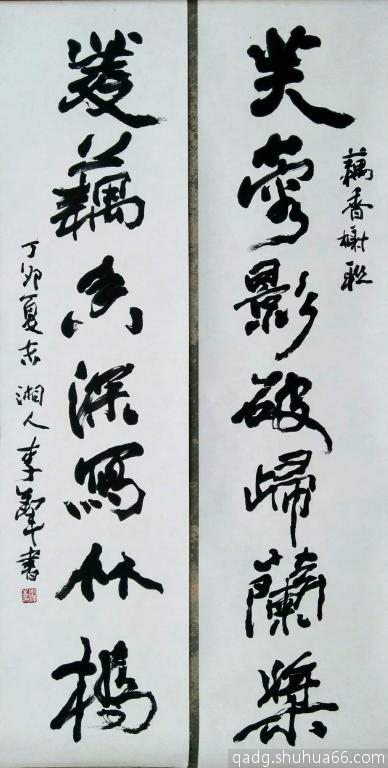 藕香榭联
芙蓉影破歸蘭槳
菱藕香深寫竹橋
丁卯夏 湘人李 書
qadg.shuhua66.com